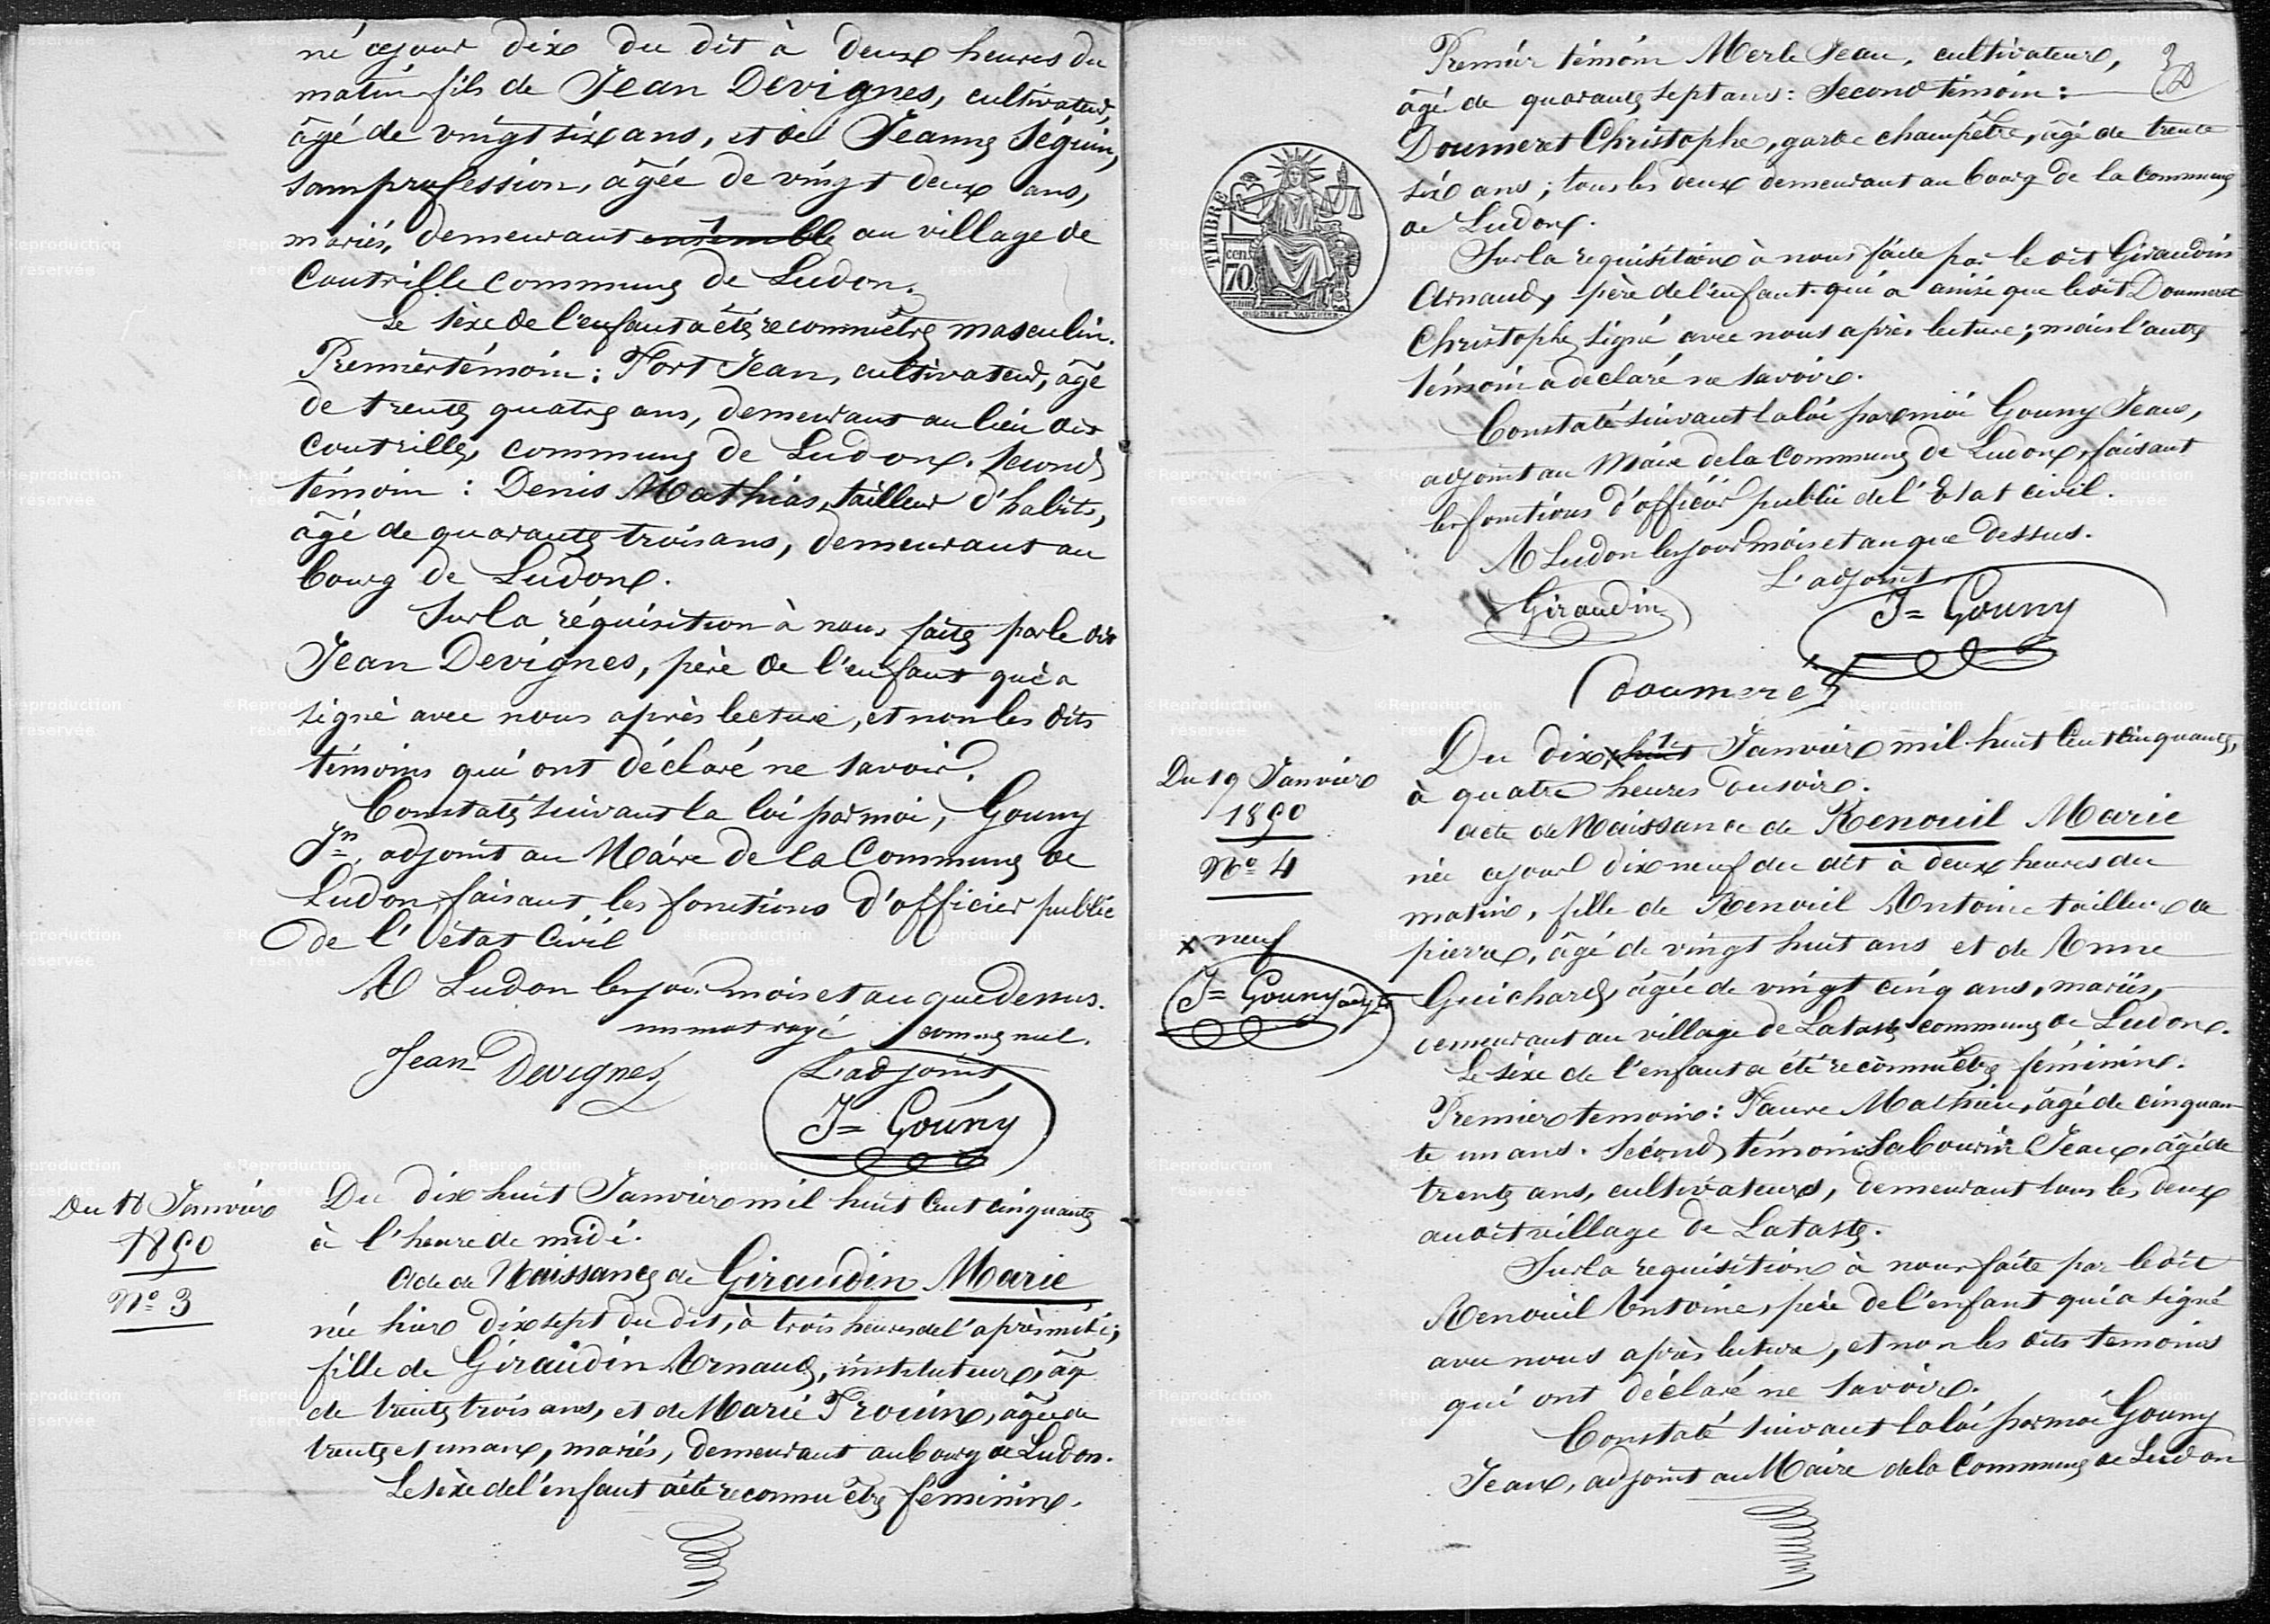 né cejour dix du dit à deux heures du
matin fils de Jean Devignes, cultivateur,
âgé de vingt six ans, et de Jeanne Séguin,
sans profession, âgée de vingt deux ans,
mariés, demeurant ensemble au village de
Coutrille commune de Ludon.
Le sèxe de l'enfant a été reconnu être masculin.
Premier témoin : Fort Jean, cultivateur, âgé
de trente quatre ans, demeurant au lieu dit
Coutrille, commune de Ludon. Second
témoin : Denis Mathias, tailleur d'habits,
âgé de quarante trois ans, demeurant au
bourg de Ludon.
Sur la réquisition à nous faite par le dit
Jean Devignes, père de l'enfant qui a
signé avec nous après lecture, et non les dits
témoins qui ont déclaré ne savoir.
Constaté suivant la loi par moi, Gouny
Jn, adjoint au Maire de la Commune de
Ludon, faisant les fonctions d'officier public
de l'état Civil
A Ludon les jour mois et an que dessus.
un mot rayé comme nul.
Jean Devignes
L'adjoint
J= Gouny
Du 18 Janvier
1850
N° 3
Du dix huit Janvier mil huit Cent cinquante
à l'heure de midi.
Acte de Naissance de Giraudin Marie
née hier dix sept du dit, à trois heures de l'après midi;
fille de Giraudin Arnaud, instituteur, âgé
de trente trois ans, et de Marie Trouin, âgée de
trente et un ans, mariés, demeurant au bourg de Ludon.
Le sèxe de l'énfant a été reconnu être féminin.
Premier témoin Merle Jean, cultivateur,
âgé de quarante sept ans : Second témoin :
Doumeret Christophe, garde champêtre, âgé de trente
six ans ; tous les deux demeurant au bourg de la Commune
de Ludon.
Sur la requisition à nous faite par le dit Giraudin
Arnaud, père de l'enfant qui a ainsi que le dit Doumeret
Christophe signé avec nous après lecture ; mais l'autre
témoin a déclaré ne savoir.
Constaté suivant la loi par moi Gouny Jean,
adjoint au Maire de la Commune de Ludon, faisant
les fonctions d'officier public de l'Etat civil.
A Ludon les jour mois et an que dessus.
L'adjoint
Giraudin
J= Gouny
doumeret
TIMBRE
cen. 70.
Du 19 Janvier
1850
N° 4
x neuf
J= Gouny adjt
Du dix x huit Janvier mil huit Cent cinquante,
à quatre heures du soir.
acte de Naissance de Renouil Marie
née cejour dix neuf du dit à deux heures du
matin, fille de Renouil Antoine tailleur de
pierre, âgé de vingt huit ans et de Anne
Guichard, âgée de vingt cinq ans, mariés,
demeurant au village de Lataste commune de Ludon.
Le sèxe de l'enfant a été reconnu être féminin.
Premier temoin : Faure Mathieu, âgé de cinquan-
te un ans. Sécond témoin Sabourin Jean, âgé de
trente ans, cultivateurs, demeurant tous les deux
au dit village de Lataste.
Sur la requisition à nous faite par le dit
Renouil Antoine, père de l'enfant qui a signé
avec nous après lecture, et non les dits temoins
qui ont déclaré ne savoir.
Constaté suivant la loi par moi Gouny
Jean, adjoint au Maire de la Commune de Ludon